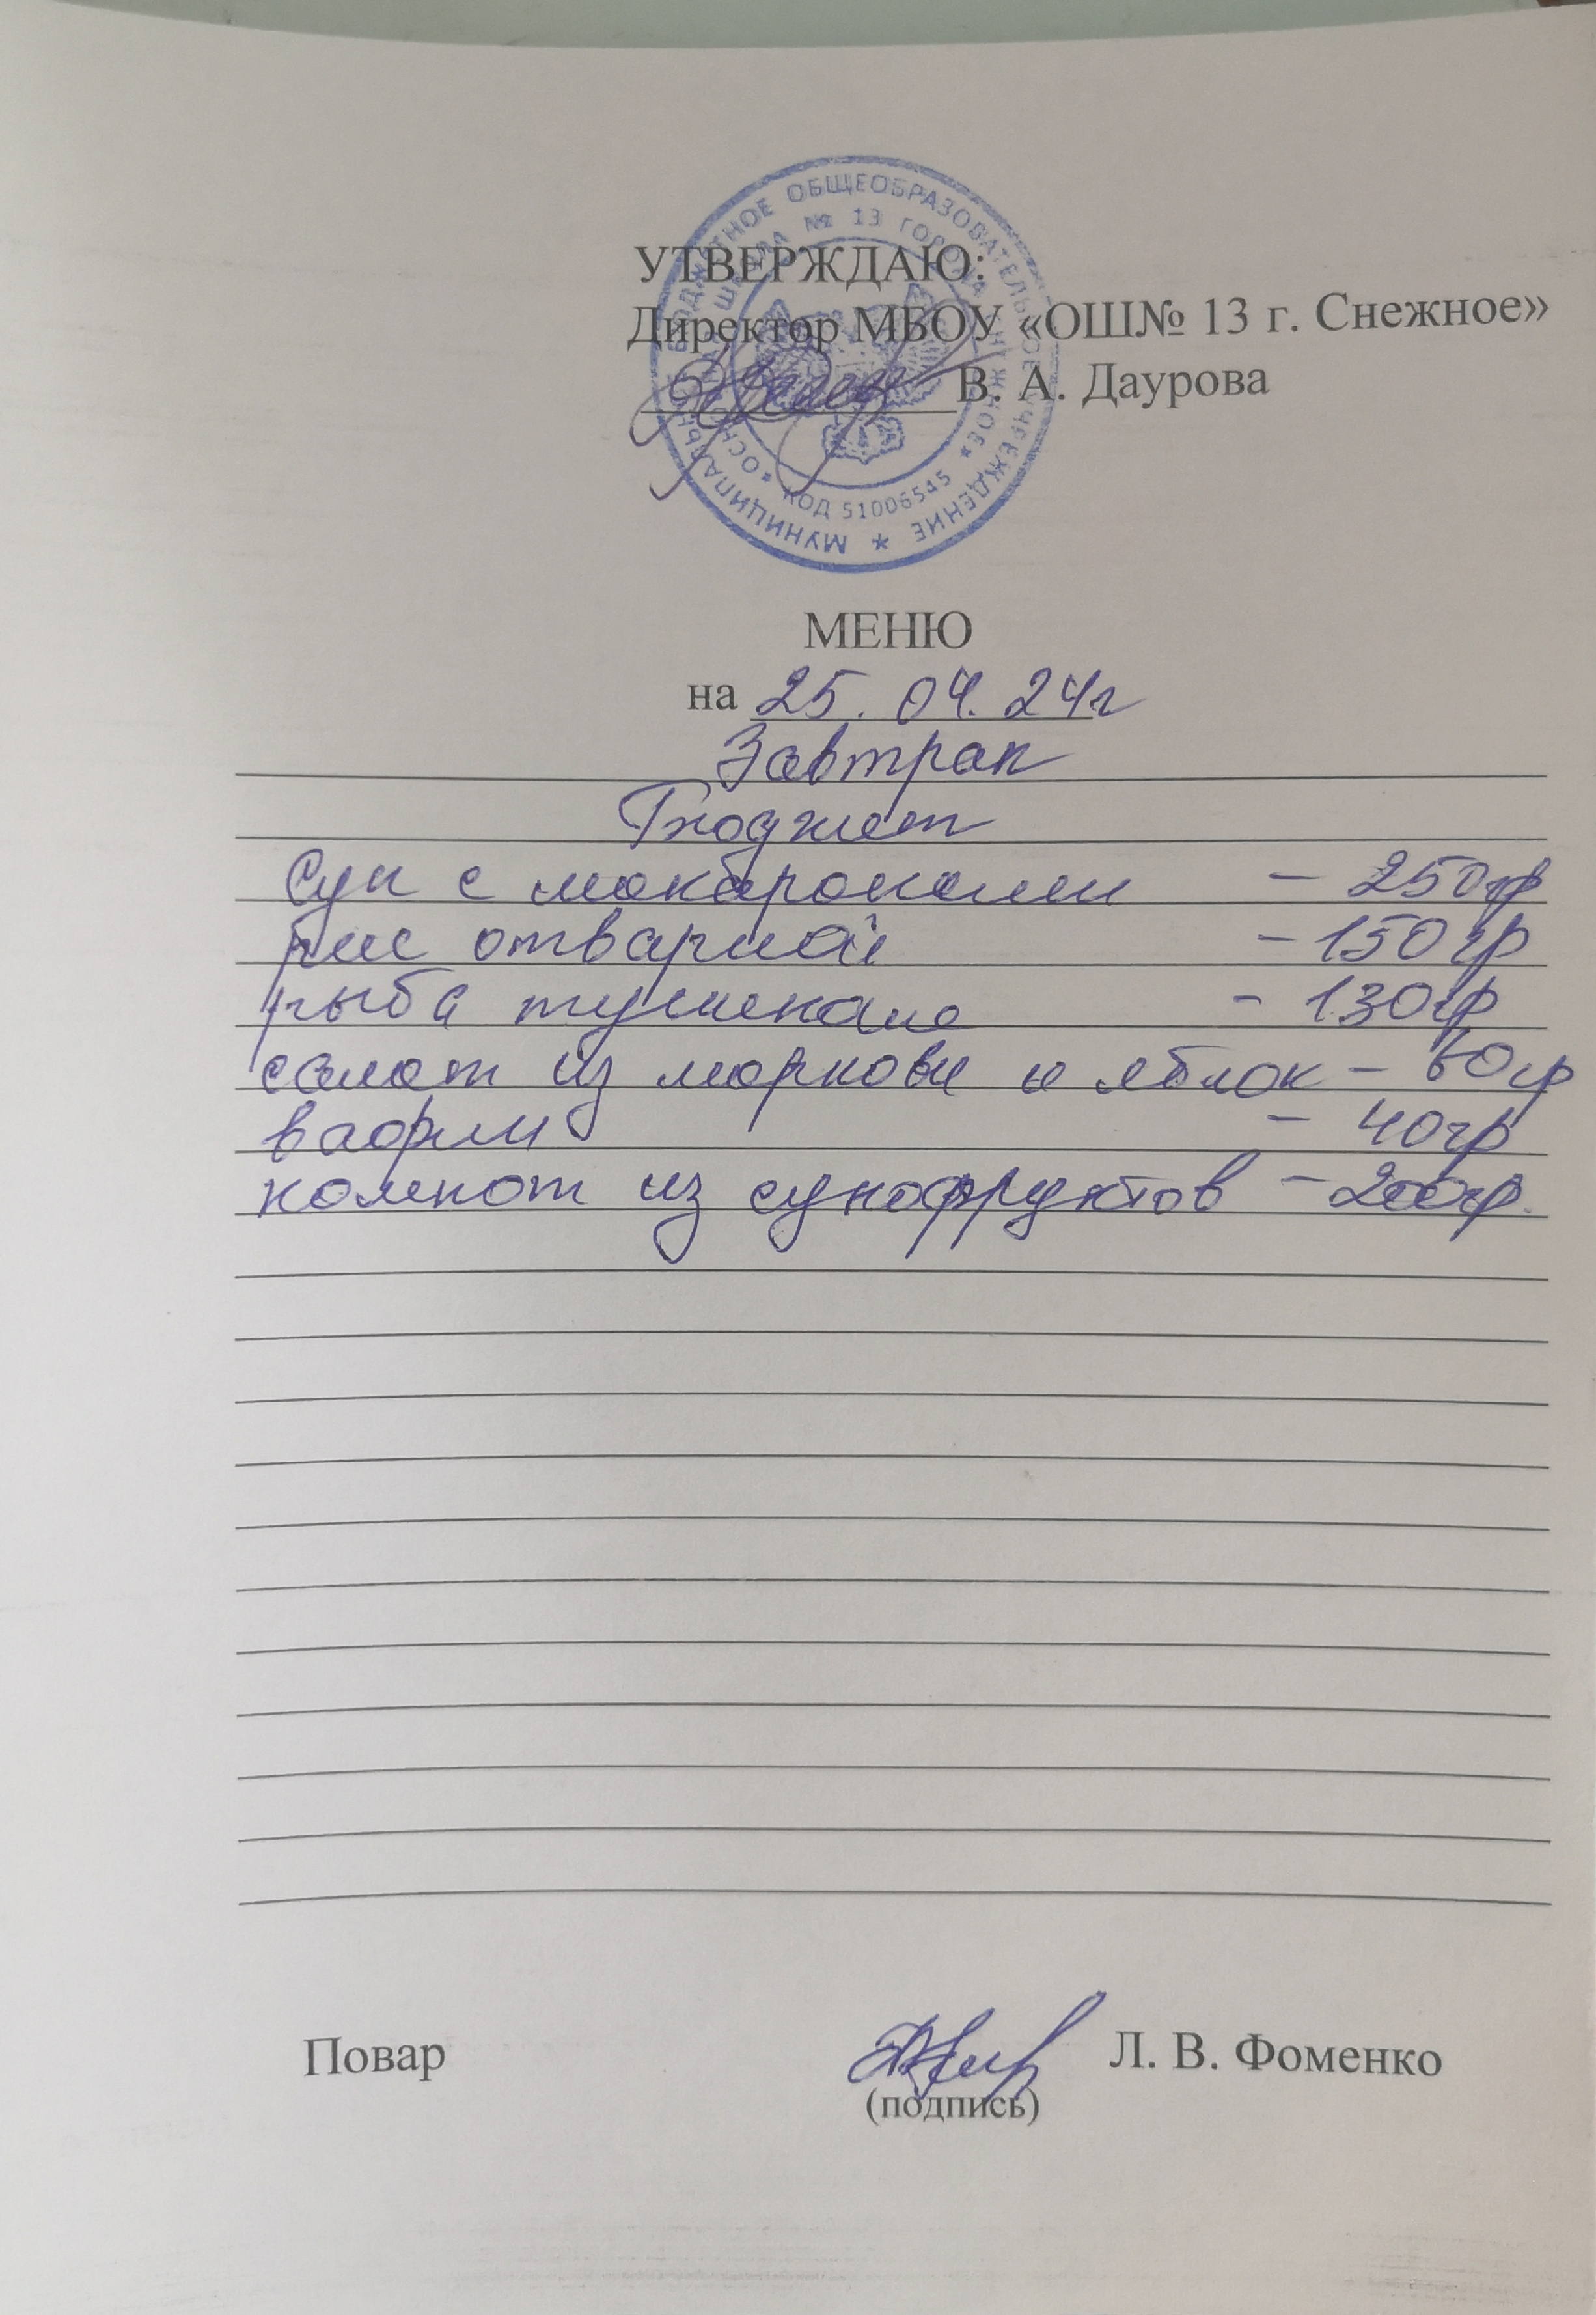 МУНИЦИПАЛЬНОЕ БЮДЖЕТНОЕ ОБЩЕОБРАЗОВАТЕЛЬНОЕ УЧРЕЖДЕНИЕ *
«ОСНОВНАЯ ШКОЛА № 13 ГОРОДА СНЕЖНОЕ» КОД 51006545
УТВЕРЖДАЮ:
Директор МБОУ «ОШ№ 13 г. Снежное»
В. А. Даурова
МЕНЮ
на 25.04.24г
Завтрак
Бюджет
Суп с макаронами - 250гр
рис отварной - 150гр
рыба тушеная - 130гр
салат из моркови и яблок - 60гр
вафли - 40гр
компот из сухофруктов - 200гр.
Повар Л. В. Фоменко
(подпись)